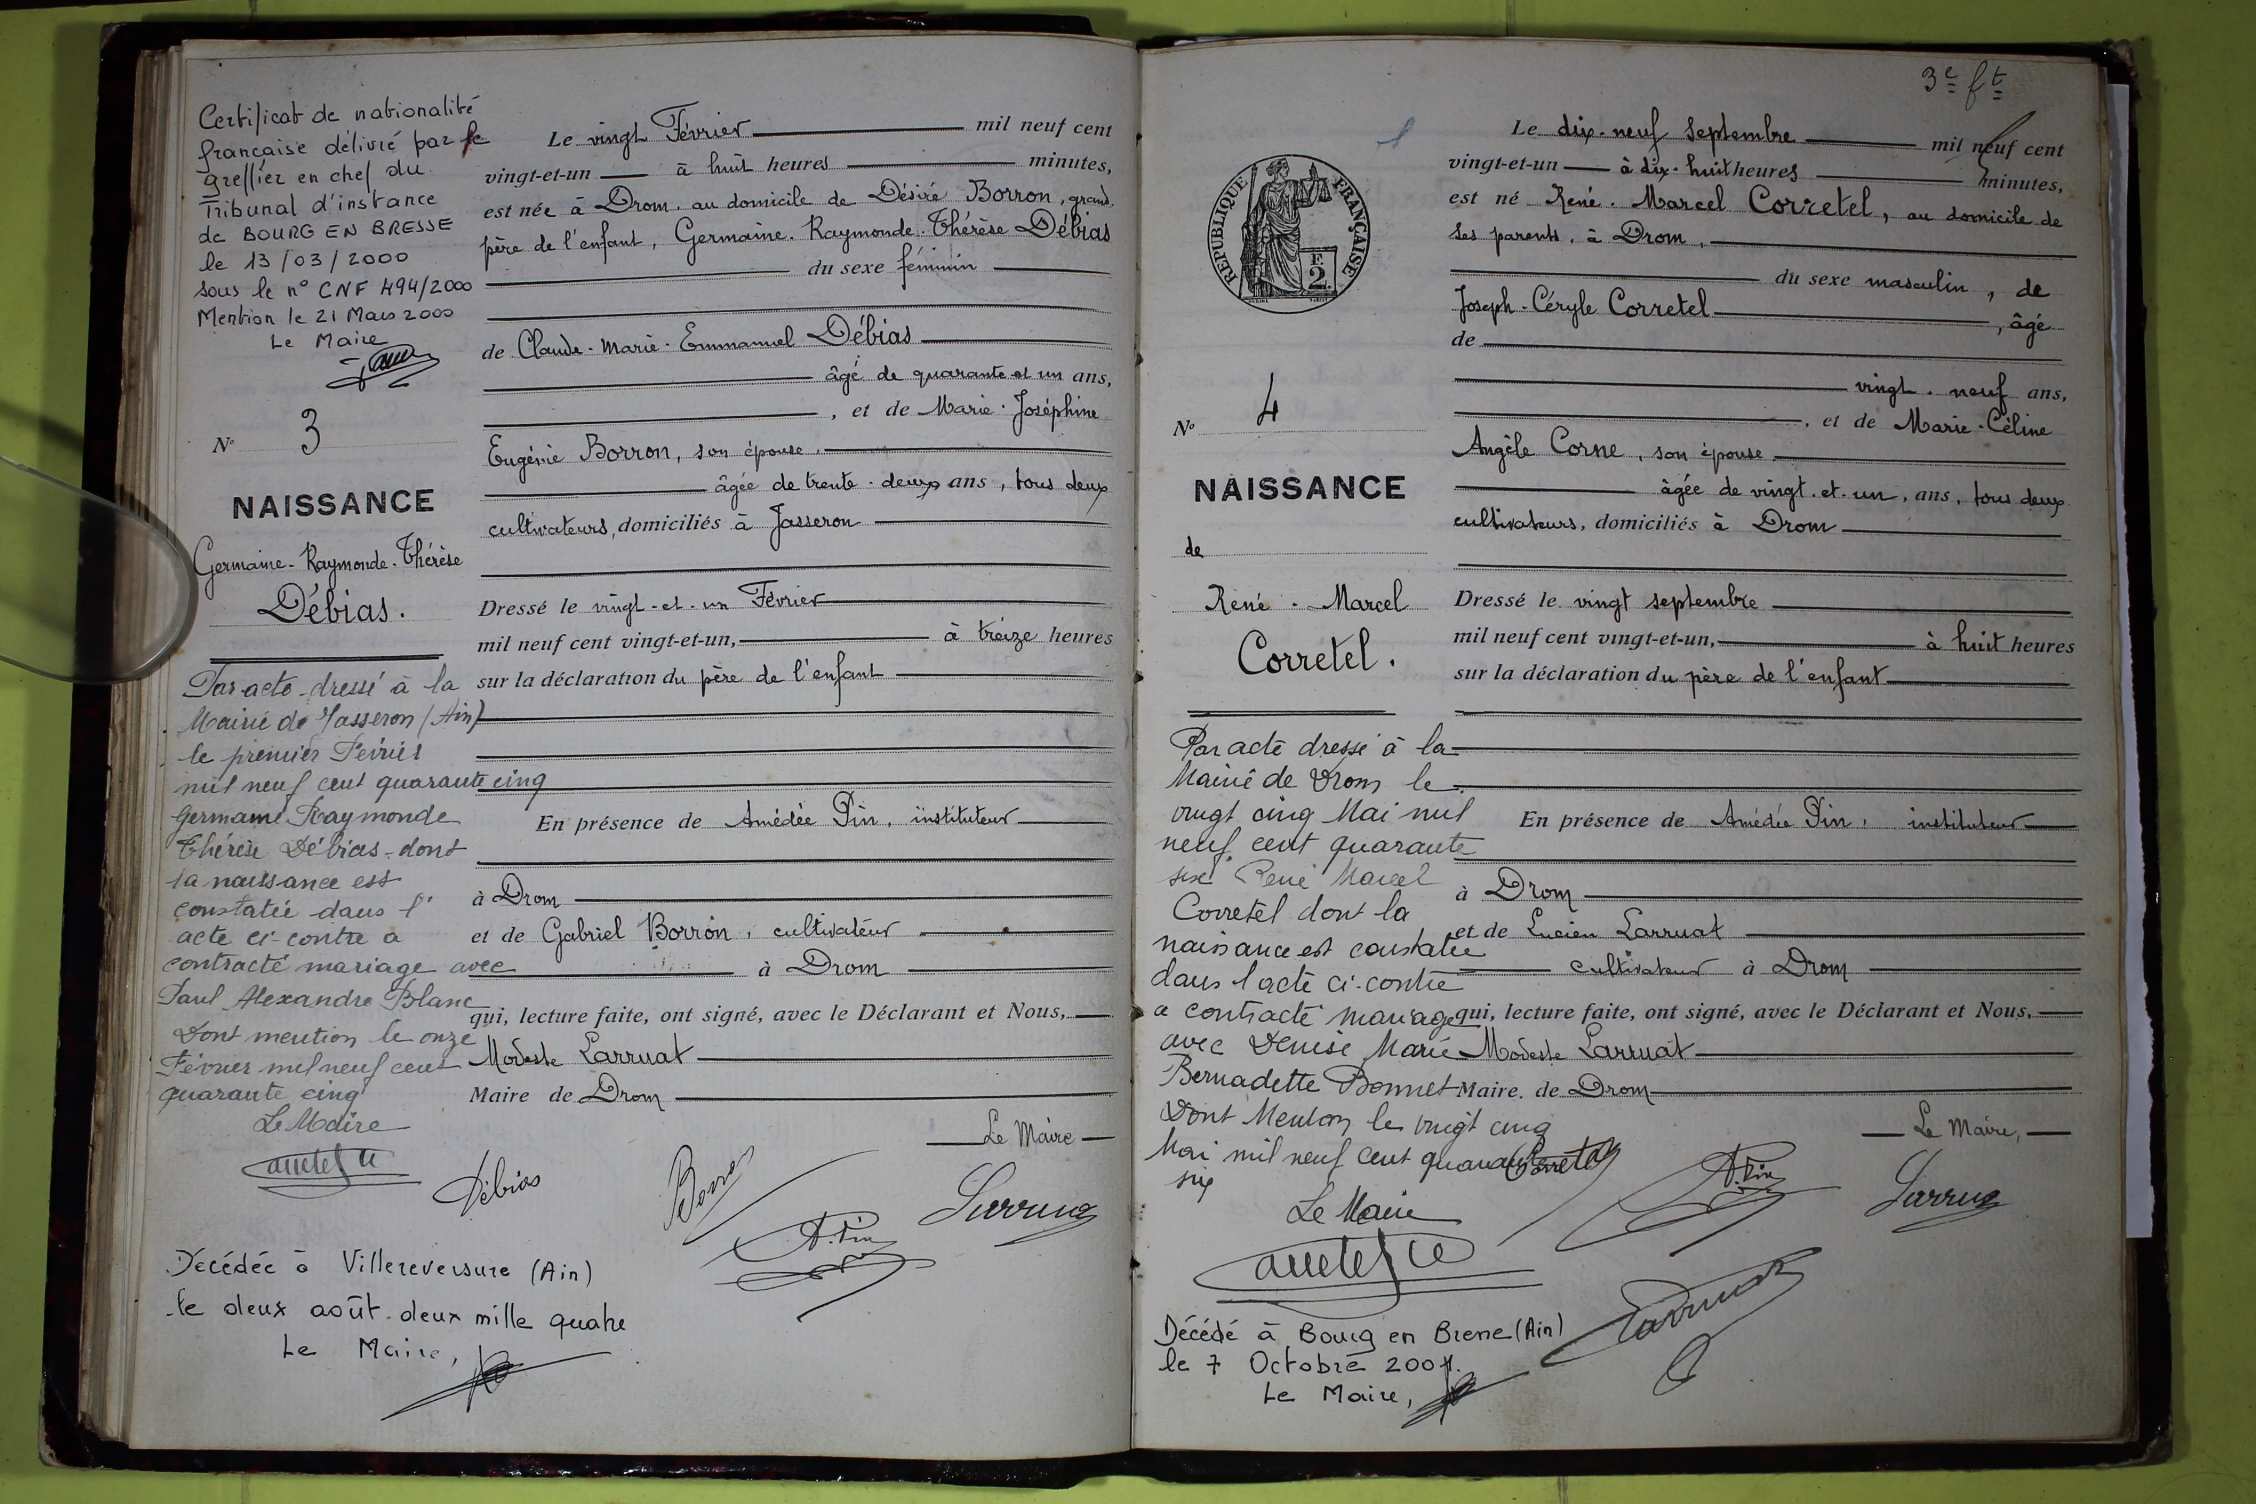 Certificat de nationalité
française délivré par le
greffier en chef du
Tribunal d'instance
de BOURG EN BRESSE
le 13/03/2000
sous le n° CNF 494/2000
Mention le 21 Mars 2000
Le Maire
N° 3
NAISSANCE
Germaine-Raymonde-Thérèse
Débias.
Par acte dressé à la
Mairie de Jasseron (Ain)
le premier Février
mil neuf cent quarante cinq
Germaine Raymonde
Thérèse Débias dont
la naissance est
constatée dans l'
acte ci-contre a
contracté mariage avec
Paul Alexandre Blanc
Dont mention le onze
Février mil neuf cent
quarante cinq
Le Maire
Le vingt Février mil neuf cent
vingt-et-un à huit heures minutes,
est née à Drom. au domicile de Désiré Borron, grand
père de l'enfant, Germaine-Raymonde-Thérèse Débias
du sexe féminin
de Claude-Marie-Emmanuel Débias
âgé de quarante et un ans,
, et de Marie-Joséphine
Eugénie Borron, son épouse,
âgée de trente-deux ans, tous deux
cultivateurs, domiciliés à Jasseron
Dressé le vingt-et-un Février
mil neuf cent vingt-et-un, à treize heures
sur la déclaration du père de l'enfant
En présence de Amédée Pin, instituteur
à Drom
et de Gabriel Borron, cultivateur
à Drom
qui, lecture faite, ont signé, avec le Déclarant et Nous,
Modeste Larruat
Maire de Drom
Le Maire
Débias
A. Pin
Décédée à Villereversure (Ain)
le deux août deux mille quatre
Le Maire,
3e ft
RÉPUBLIQUE FRANÇAISE
F.
2.
N° 4
NAISSANCE
de
René-Marcel
Corretel.
Par acte dressé à la
Mairie de Drom le
vingt cinq Mai mil
neuf cent quarante
six René Marcel
Corretel dont la
naissance est constatée
dans l'acte ci-contre
a contracté mariage
avec Denise Marie
Bernadette Bonnet
Dont Mention le vingt cinq
Mai mil neuf cent quarante
six
Le Maire
Le dix-neuf septembre mil neuf cent
vingt-et-un à dix-huit heures minutes,
est né René-Marcel Corretel, au domicile de
ses parents, à Drom,
du sexe masculin, de
Joseph-Céryle Corretel, âgé
de
vingt-neuf ans,
, et de Marie-Céline
Angèle Corne, son épouse
âgée de vingt-et-un, ans, tous deux
cultivateurs, domiciliés à Drom
Dressé le vingt septembre
mil neuf cent vingt-et-un, à huit heures
sur la déclaration du père de l'enfant
En présence de Amédée Pin, instituteur
à Drom
et de Lucien Larruat
cultivateur à Drom
qui, lecture faite, ont signé, avec le Déclarant et Nous,
Modeste Larruat
Maire de Drom
Le Maire,
Corretel
A. Pin
Décédé à Bourg en Bresse (Ain)
le 7 Octobre
Le Maire,